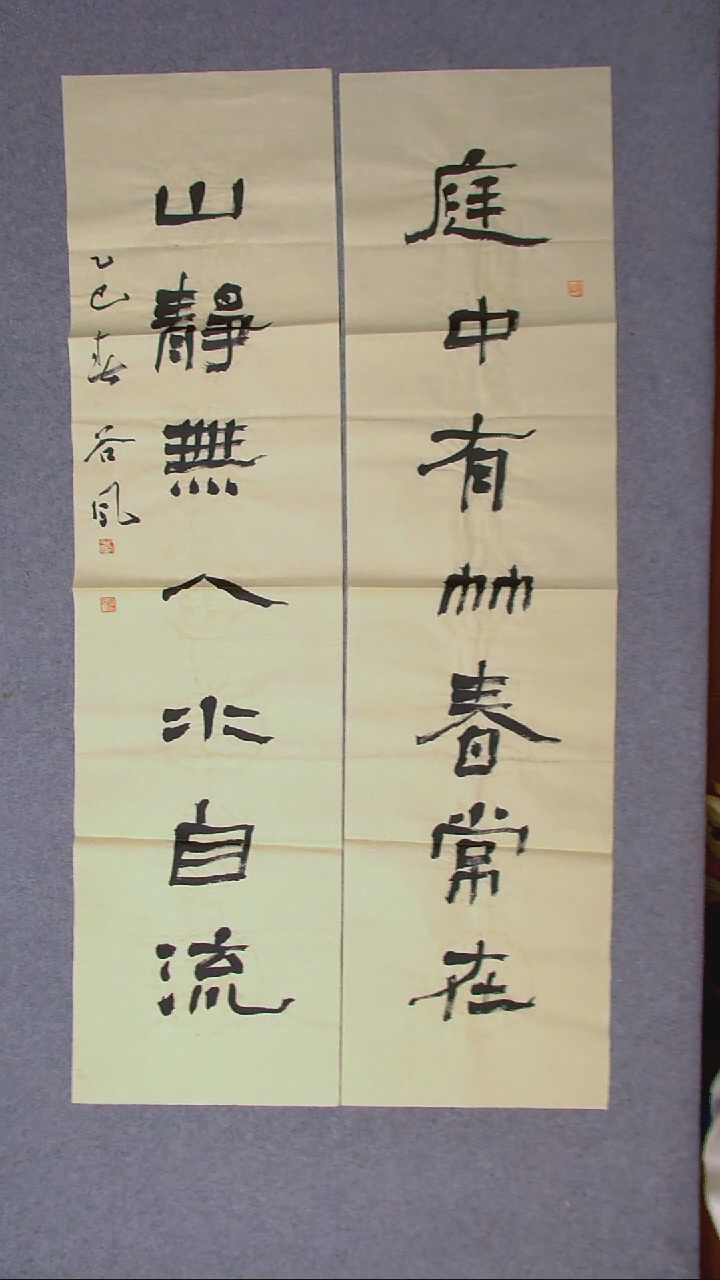 庭中有竹春常在
山靜無人水自流
乙巳春 谷風